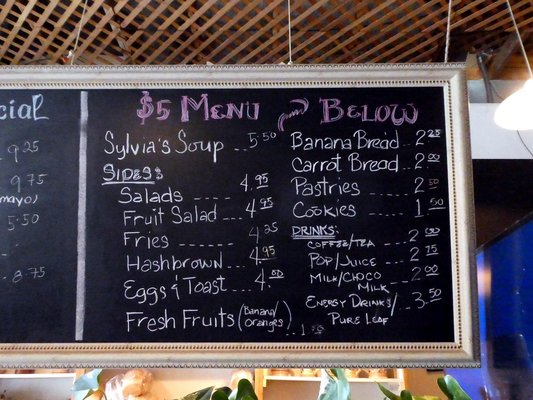 cial
9.25
9.75
mayo)
5.50
8.75
$5 MENU BELOW
Sylvia's Soup .. 5.50
SIDES:
Salads ---- 4.95
Fruit Salad ... 4.95
Fries ------ 4.25
Hashbrown ... 4.95
Eggs & Toast .... 4.00
Fresh Fruits (Banana/
Oranges) .. 1.50
Banana Bread .. 2.25
Carrot Bread .. 2.00
Pastries ---- 2.50
Cookies ---- 1.50
DRINKS:
COFFEE/TEA ---- 2.00
POP/JUICE ---- 2.75
MILK/CHOCO
MILK ... 2.00
ENERGY DRINKS/
PURE LEAF .. 3.50